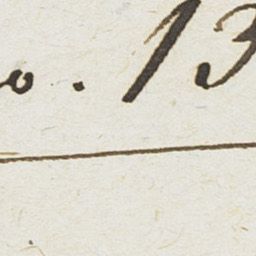 o. 13